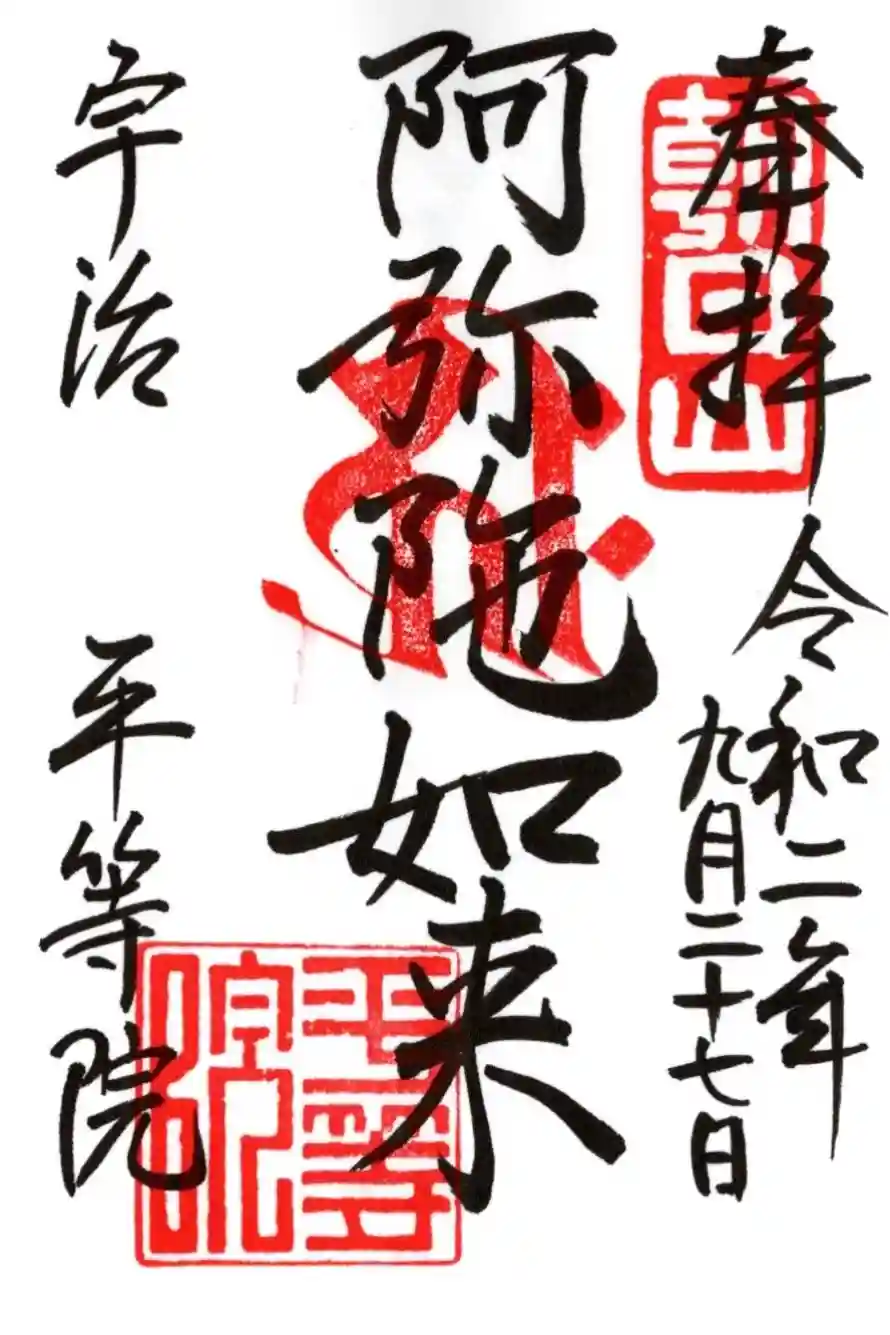 奉拝
朝日山
令和二年
九月二十七日
阿弥陀如来
宇治
平等院
平等院